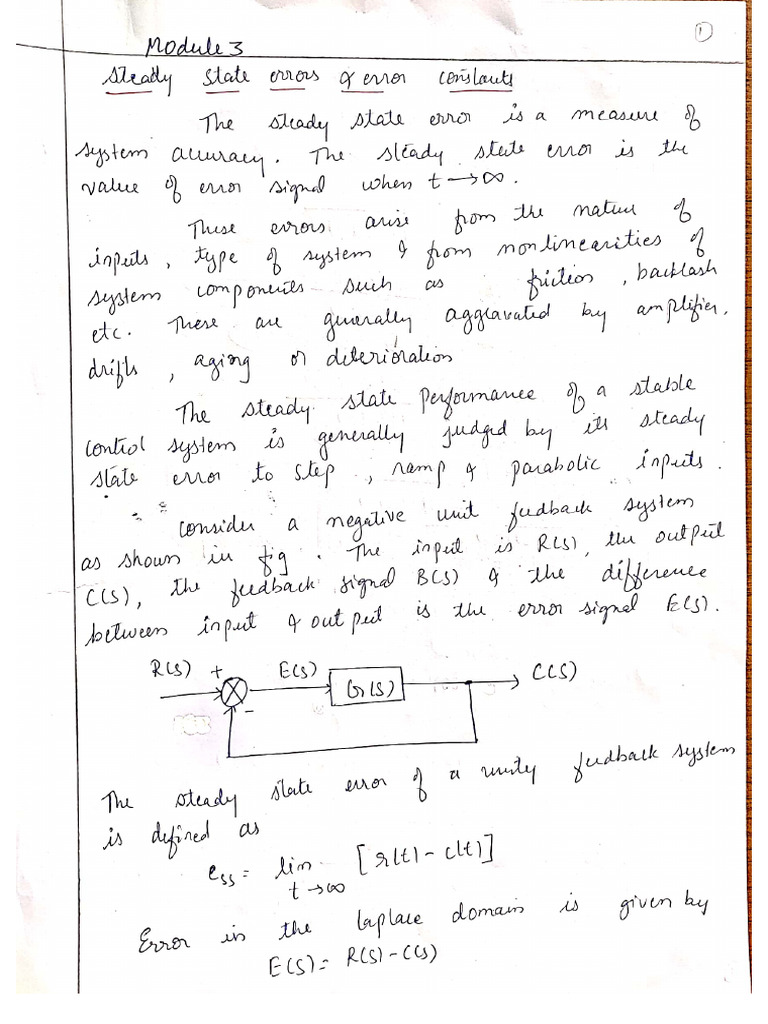 1
Module 3
Steady State errors & error constants
The steady state error is a measure of
system accuracy. The steady state error is the
value of error signal when t → ∞.
These errors arise from the nature of
inputs, type of system & from nonlinearities of
system components such as friction, backlash
etc. These are generally aggravated by amplifier.
drifts, aging or deterioration
The steady state performance of a stable
control system is generally judged by its steady
state error to step, ramp & parabolic inputs.
Consider a negative unit feedback system
as shown in fig. The input is R(s), the output
C(s), the feedback signal B(s) & the difference
between input & output is the error signal E(s).
R(s) + E(s) G(s) C(s)
-
The steady state error of a unity feedback system
is defined as
ess = lim [r(t) - c(t)]
t → ∞
Error in the laplace domain is given by
E(s) = R(s) - C(s)